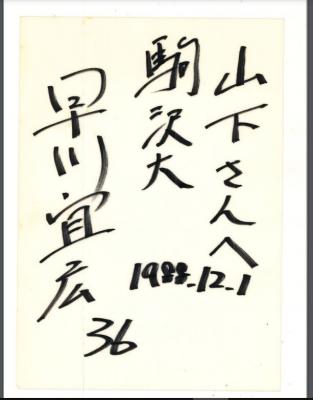 山下さんへ
駒沢大
早川宜広
1988.12.1
36